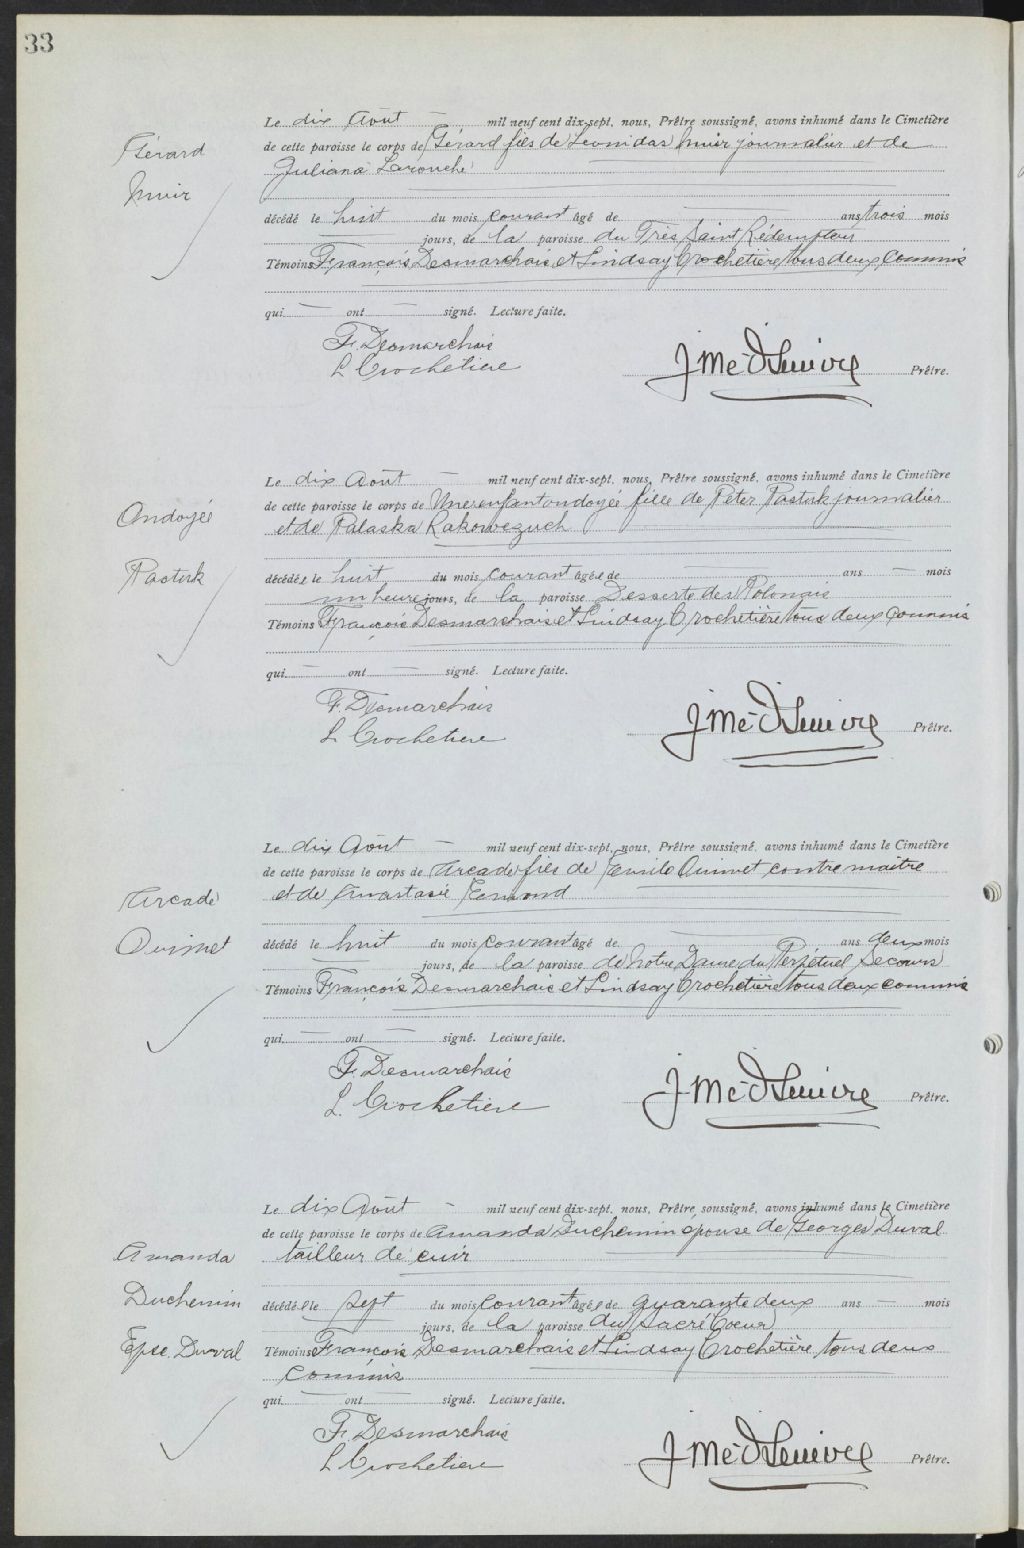 33
Gérard
Muir
Le dix Août — mil neuf cent dix-sept, nous, Prêtre soussigné, avons inhumé dans le Cimetière
de cette paroisse le corps de Gérard fils de Léonidas Muir journalier et de
Juliana Larouche
décédé le huit du mois courant âgé de ans trois mois
jours, de la paroisse du Très Saint Rédempteur
Témoins François Desmarchais et Lindsay Crochetière tous deux commis
qui — ont — signé. Lecture faite.
F. Desmarchais
L Crochetiere
Prêtre.
Ondoyée
Pasturk
Le dix Août — mil neuf cent dix-sept, nous, Prêtre soussigné, avons inhumé dans le Cimetière
de cette paroisse le corps de Une enfant ondoyée fille de Peter Pasturk journalier
et de Palaska
décédée le huit du mois courant âgée de ans — mois
un heure jours, de la paroisse Desserte des Polonais
Témoins François Desmarchais et Lindsay Crochetière tous deux commis
qui — ont — signé. Lecture faite.
F. Desmarchais
L Crochetiere
Prêtre.
Arcade
Ouimet
Le dix Août — mil neuf cent dix-sept, nous, Prêtre soussigné, avons inhumé dans le Cimetière
de cette paroisse le corps de Arcade fils de Emile Ouimet contremaitre
et de Anastasie Emond
décédé le huit du mois courant âgé de ans deux mois
jours, de la paroisse de Notre Dame du Perpétuel Secours
Témoins François Desmarchais et Lindsay Crochetière tous deux commis
qui — ont — signé. Lecture faite.
F. Desmarchais
L. Crochetiere
Prêtre.
Amanda
Duchemin
Epse Duval
Le dix Août — mil neuf cent dix-sept, nous, Prêtre soussigné, avons inhumé dans le Cimetière
de cette paroisse le corps de Amanda Duchemin épouse de Georges Duval
tailleur de cuir
décédée le sept du mois courant âgée de quarante deux ans — mois
jours, de la paroisse du Sacré Coeur
Témoins François Desmarchais et Lindsay Crochetière tous deux
commis
qui ont signé. Lecture faite.
F. Desmarchais
L Crochetiere
Prêtre.